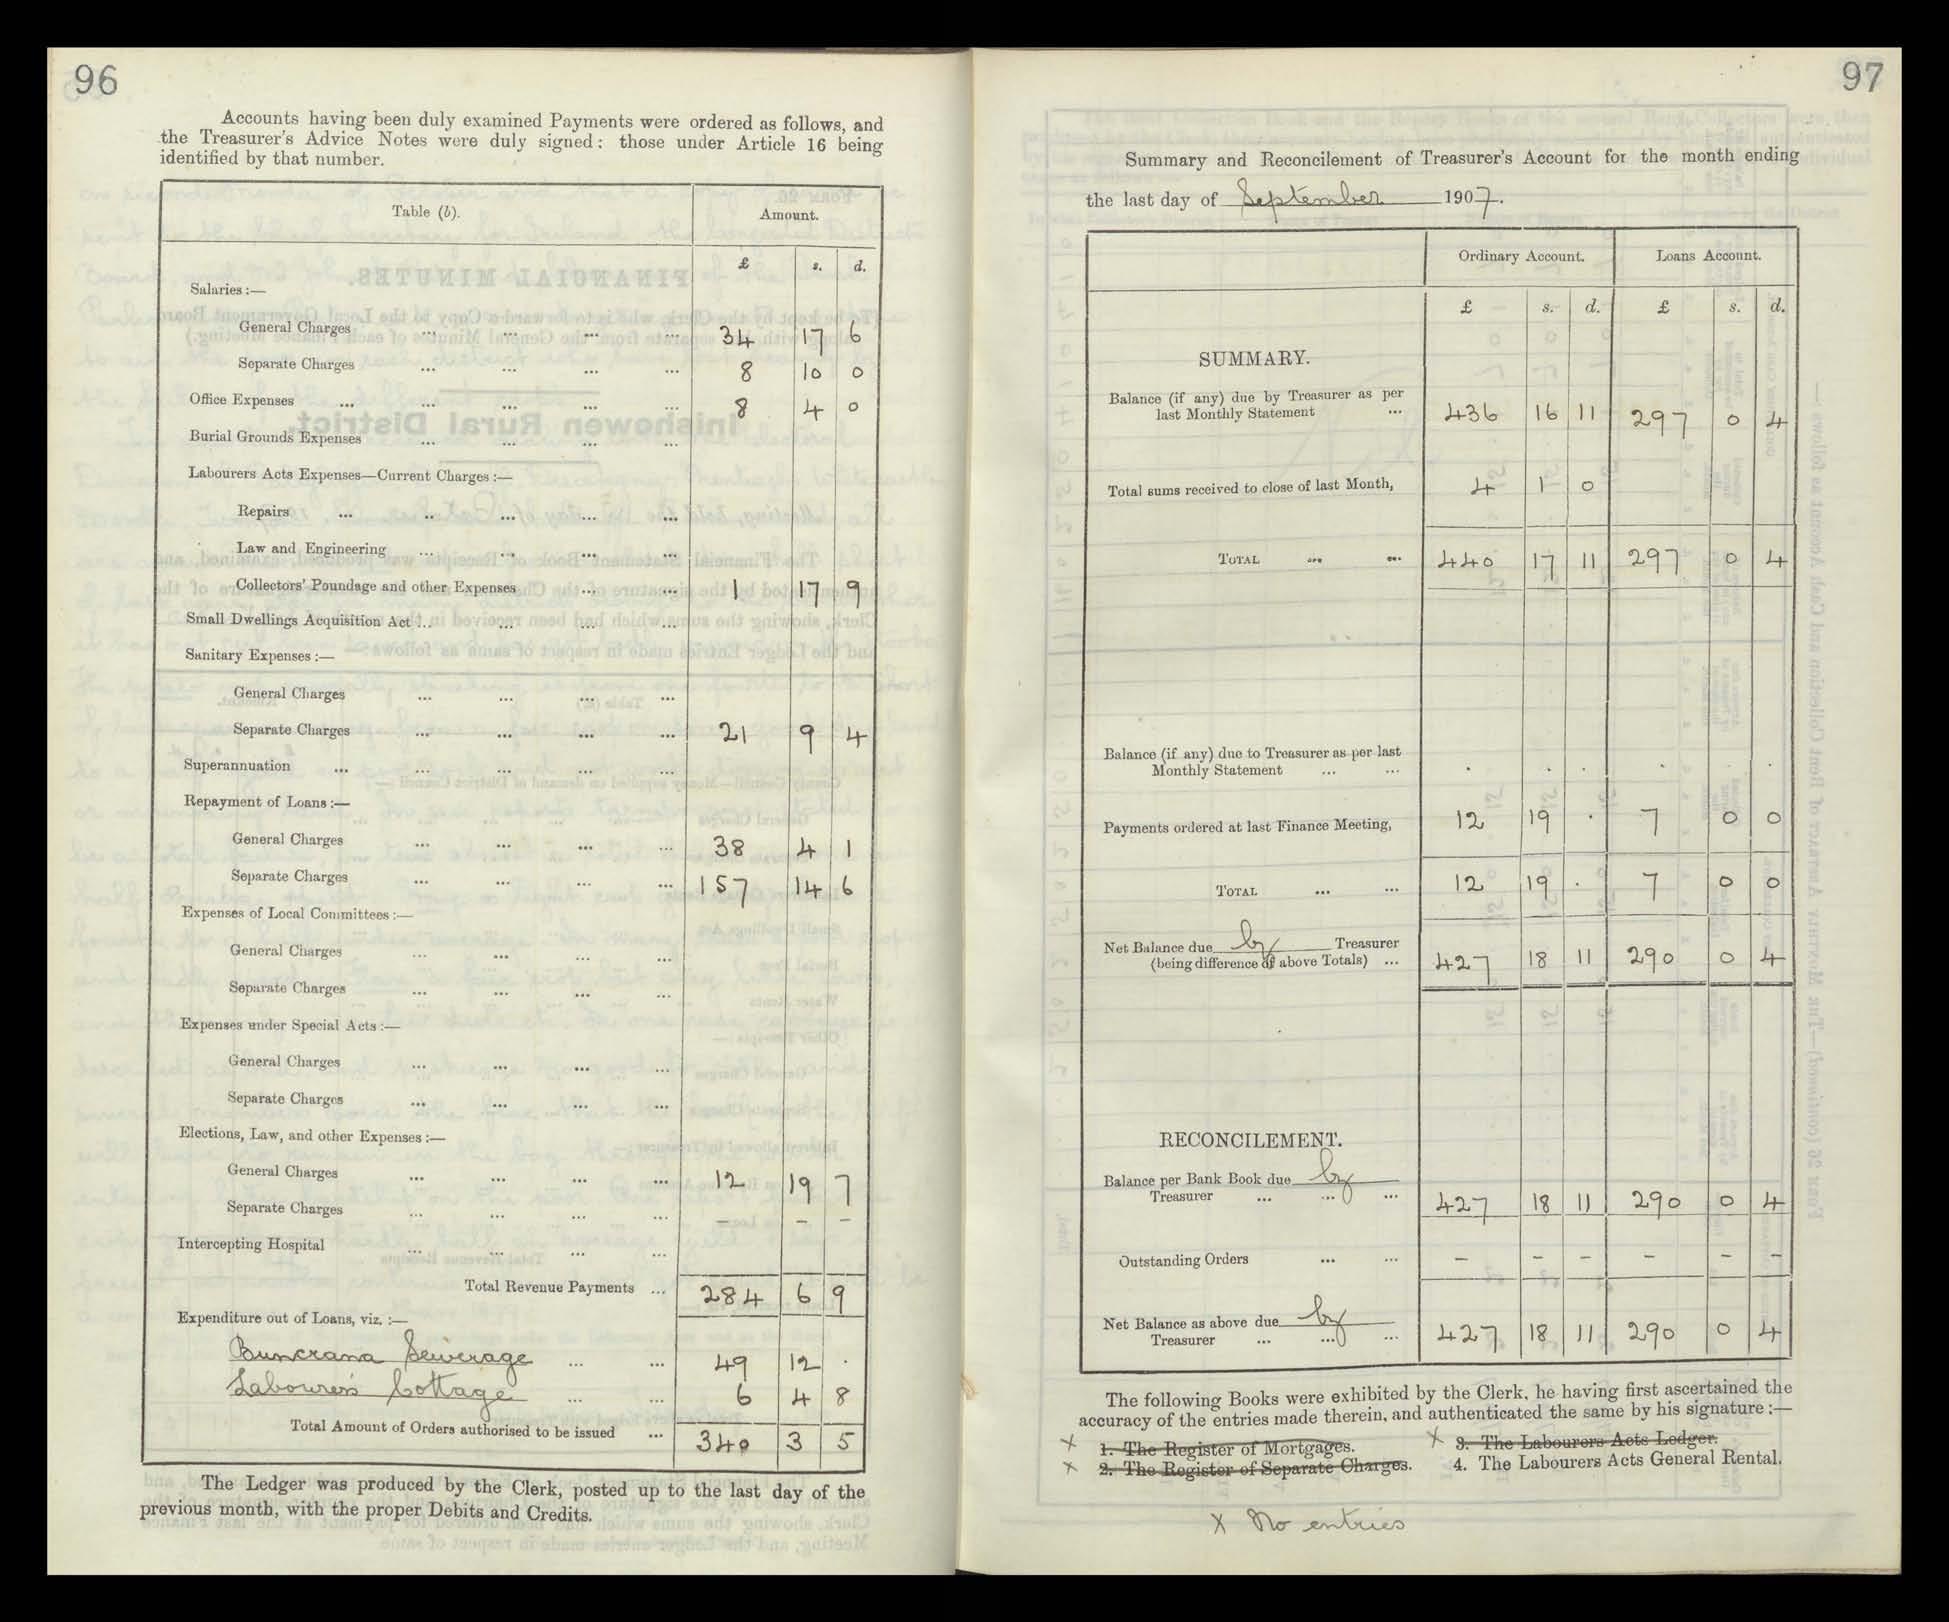 96
Accounts having been duly examined Payments were ordered as follows, and
the Treasurer's Advice Notes were duly signed: those under Article 16 being
identified by that number.
Table (b). Amount.
£ s. d.
Salaries:—
General Charges ... ... ... ... 34 17 6
Separate Charges ... ... ... ... 8 10 0
Office Expenses ... ... ... ... ... 8 4 0
Burial Grounds Expenses ... ... ... ...
Labourers Acts Expenses—Current Charges:—
Repairs ... ... ... ... ...
Law and Engineering ... ... ... ...
Collectors' Poundage and other Expenses ... ... 1 17 9
Small Dwellings Acquisition Act ... ... ... ...
Sanitary Expenses:—
General Charges ... ... ... ...
Separate Charges ... ... ... ... 21 9 4
Superannuation ... ... ... ... ...
Repayment of Loans:—
General Charges ... ... ... ... 38 4 1
Separate Charges ... ... ... ... 157 14 6
Expenses of Local Committees:—
General Charges ... ... ... ...
Separate Charges ... ... ... ...
Expenses under Special Acts:—
General Charges ... ... ... ...
Separate Charges ... ... ... ...
Elections, Law, and other Expenses:—
General Charges ... ... ... ... 12 19 7
Separate Charges ... ... ... ... – – –
Intercepting Hospital ... ... ... ...
Total Revenue Payments ... 284 6 9
Expenditure out of Loans, viz.:—
Buncrana Sewerage ... ... 49 12 .
Labourers Cottage ... ... 6 4 8
Total Amount of Orders authorised to be issued ... 340 3 5
The Ledger was produced by the Clerk, posted up to the last day of the
previous month, with the proper Debits and Credits.
97
Summary and Reconcilement of Treasurer's Account for the month ending
the last day of September 1907.
Ordinary Account. Loans Account.
£ s. d. £ s. d.
SUMMARY.
Balance (if any) due by Treasurer as per
last Monthly Statement ... 436 16 11 297 0 4
Total sums received to close of last Month, 4 1 0
TOTAL ... ... 440 17 11 297 0 4
Balance (if any) due to Treasurer as per last
Monthly Statement ... ... . . . . . .
Payments ordered at last Finance Meeting, 12 19 . 7 0 0
TOTAL ... ... 12 19 . 7 0 0
Net Balance due by Treasurer
(being difference of above Totals) ... 427 18 11 290 0 4
RECONCILEMENT.
Balance per Bank Book due by
Treasurer ... ... ... 427 18 11 290 0 4
Outstanding Orders ... ... – – – – – –
Net Balance as above due by
Treasurer ... ... ... 427 18 11 290 0 4
The following Books were exhibited by the Clerk, he having first ascertained the
accuracy of the entries made therein, and authenticated the same by his signature:—
X 1. The Register of Mortgages. X 3. The Labourers Acts Ledger.
X 2. The Register of Separate Charges. 4. The Labourers Acts General Rental.
X No entries